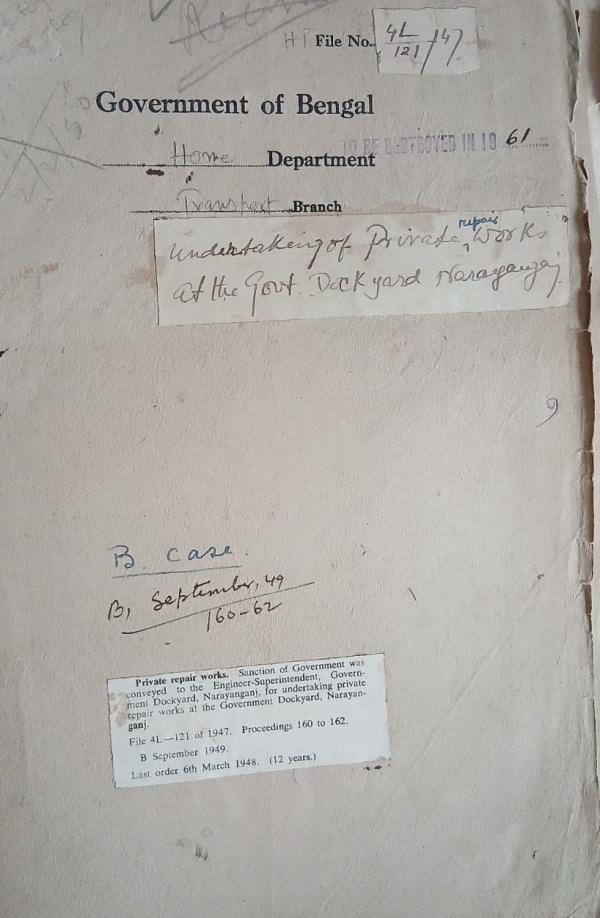 HT File No. 4L/121/47
Government of Bengal
TO BE DESTROYED IN 19 61
Home Department
Transport Branch
undertaking of Private repair works
at the Govt. Dockyard Narayanganj
9
B. case.
B, September, 49
160-62
Private repair works. Sanction of Government was
conveyed to the Engineer-Superintendent, Govern-
ment Dockyard, Narayanganj, for undertaking private
repair works at the Government Dockyard, Narayan-
ganj.
File 4L—121 of 1947. Proceedings 160 to 162.
B September 1949.
Last order 6th March 1948. (12 years.)